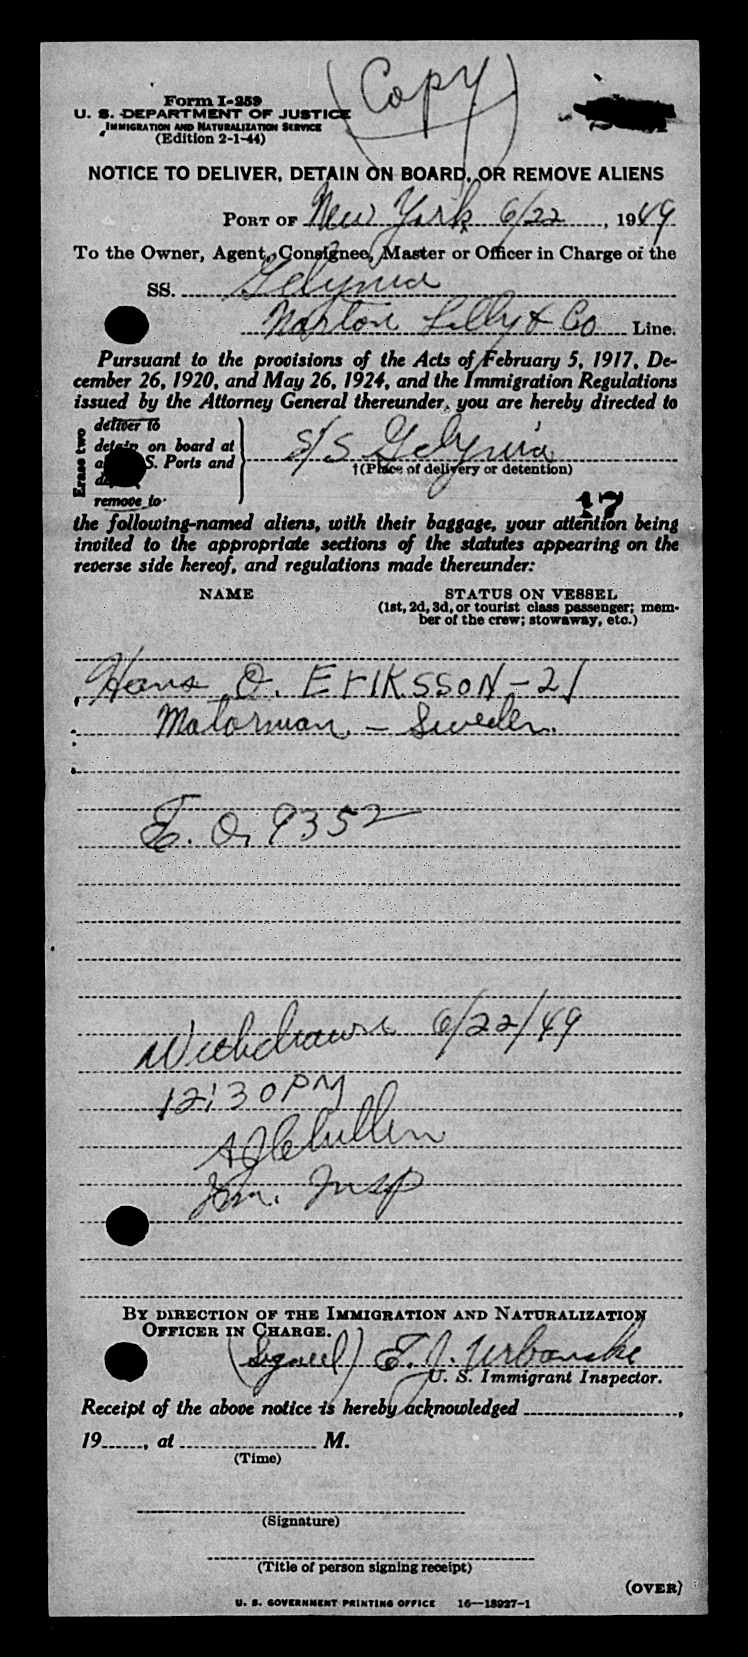 (Copy)
Form I-259
U. S. DEPARTMENT OF JUSTICE
IMMIGRATION AND NATURALIZATION SERVICE
(Edition 2-1-44)
NOTICE TO DELIVER, DETAIN ON BOARD, OR REMOVE ALIENS
PORT OF New York 6/22, 1949
To the Owner, Agent, Consignee, Master or Officer in Charge of the
SS. Gdynia
Norton Lilly & Co Line.
Pursuant to the provisions of the Acts of February 5, 1917, De-
cember 26, 1920, and May 26, 1924, and the Immigration Regulations
issued by the Attorney General thereunder, you are hereby directed to
Erase two
deliver to
detain on board at
S. Ports and
remove to
S/S Gdynia
†(Place of delivery or detention)
17
the following-named aliens, with their baggage, your attention being
invited to the appropriate sections of the statutes appearing on the
reverse side hereof, and regulations made thereunder:
NAME STATUS ON VESSEL
(1st, 2d, 3d, or tourist class passenger; mem-
ber of the crew; stowaway, etc.)
Hans O. ERIKSSON - 21
Motorman - Sweden.
E. O. 9352
Withdrawn 6/22/49
12:30 PM
Im. Insp
BY DIRECTION OF THE IMMIGRATION AND NATURALIZATION
OFFICER IN CHARGE.
(Signed) E. J. Urbanske
U. S. Immigrant Inspector.
Receipt of the above notice is hereby acknowledged ,
19 , at M.
(Time)
(Signature)
(Title of person signing receipt)
(OVER)
U. S. GOVERNMENT PRINTING OFFICE 16—18927-1